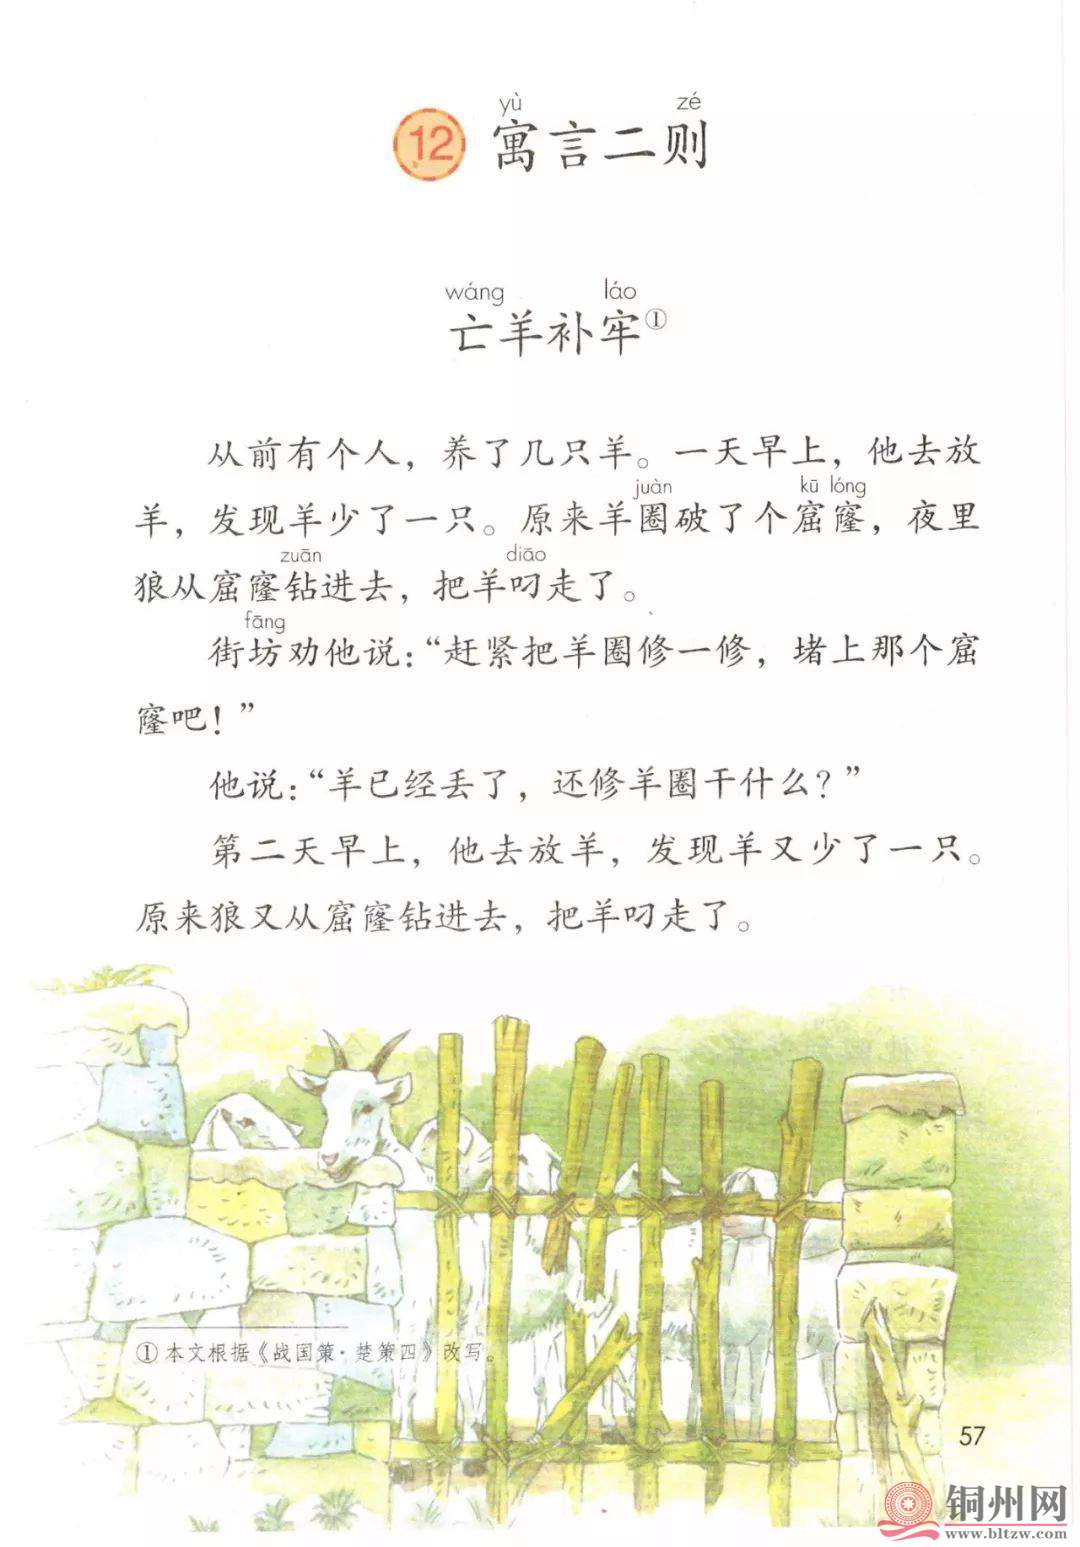 yù zé
12 寓言二则
wáng láo
亡羊补牢①
从前有个人，养了几只羊。一天早上，他去放
juàn kū lóng
羊，发现羊少了一只。原来羊圈破了个窟窿，夜里
zuān diāo
狼从窟窿钻进去，把羊叼走了。
fāng
街坊劝他说：“赶紧把羊圈修一修，堵上那个窟
窿吧！”
他说：“羊已经丢了，还修羊圈干什么？”
第二天早上，他去放羊，发现羊又少了一只。
原来狼又从窟窿钻进去，把羊叼走了。
①本文根据《战国策·楚策四》改写。
57
铜州网
www.bltzw.com